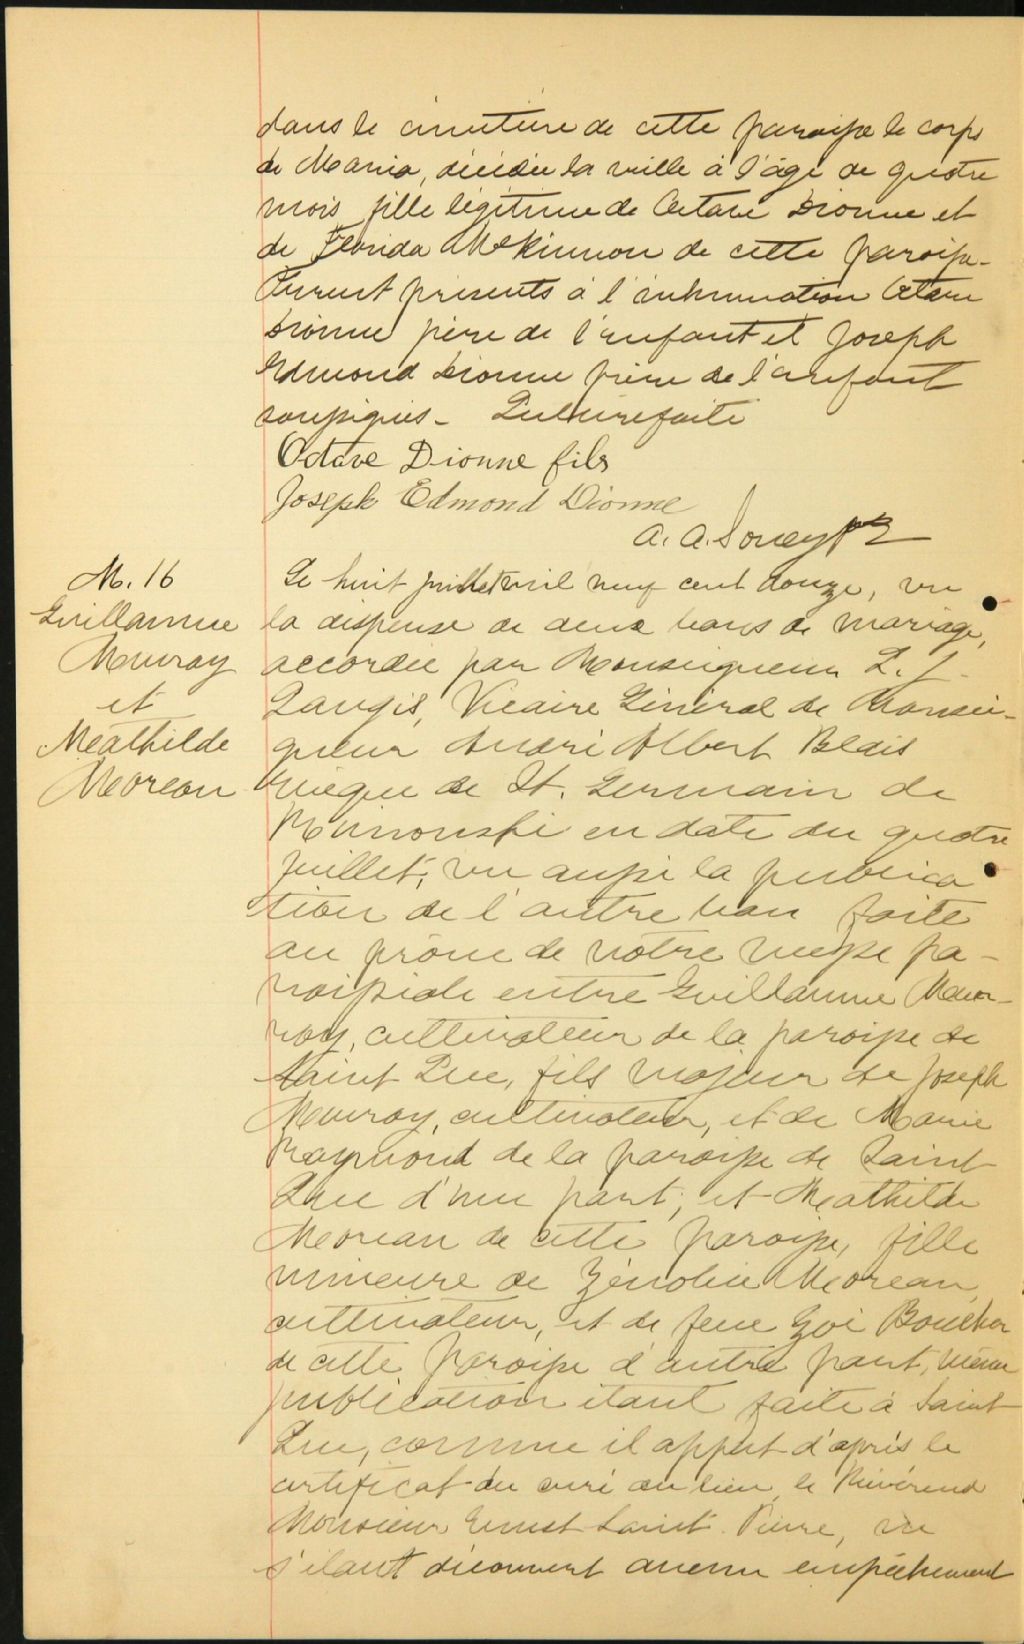 dans le cimetière de cette paroisse le corps
de Maria, décédée la veille à l'âge de quatre
mois fille légitime de Octave Dionne et
de Florida McKinnon de cette paroisse.
Furent présents à l'inhumation Octave
Dionne père de l'enfant et Joseph
Edmond Dionne frère de l'enfant
soussignés - Lecture faite
Octave Dionne fils
Joseph Edmond Dionne
A. A. Soucy ptre
M. 16
Guillaume
Mauray
et
Mathilde
Moreau
Le huit juillet mil neuf cent douze, vu
la dispense de deux bans de mariage,
accordée par Monseigneur L. J.
Langis, Vicaire Général de Monsei-
gneur André Albert Blais
Evêque de St. Germain de
Rimouski en date du quatre
juillet; vu aussi la publica
tion de l'autre ban faite
au prône de notre messe pa-
roissiale entre Guillaume Mau-
ray, cultivateur de la paroisse de
Saint Luc, fils majeur de Joseph
Mauray, cultivateur, et de Marie
Raymond de la paroisse de Saint
Luc d'une part; et Mathilde
Moreau de cette paroisse, fille
mineure de Zénobie Moreau,
cultivateur, et de feue Zoé Boucher
de cette paroisse d'autre part, même
publication étant faite à Saint
Luc, comme il appert d'après le
certificat du curé du lieu, le Révérend
Monsieur Ernest Saint Pierre, ne
s'étant découvert aucun empêchement